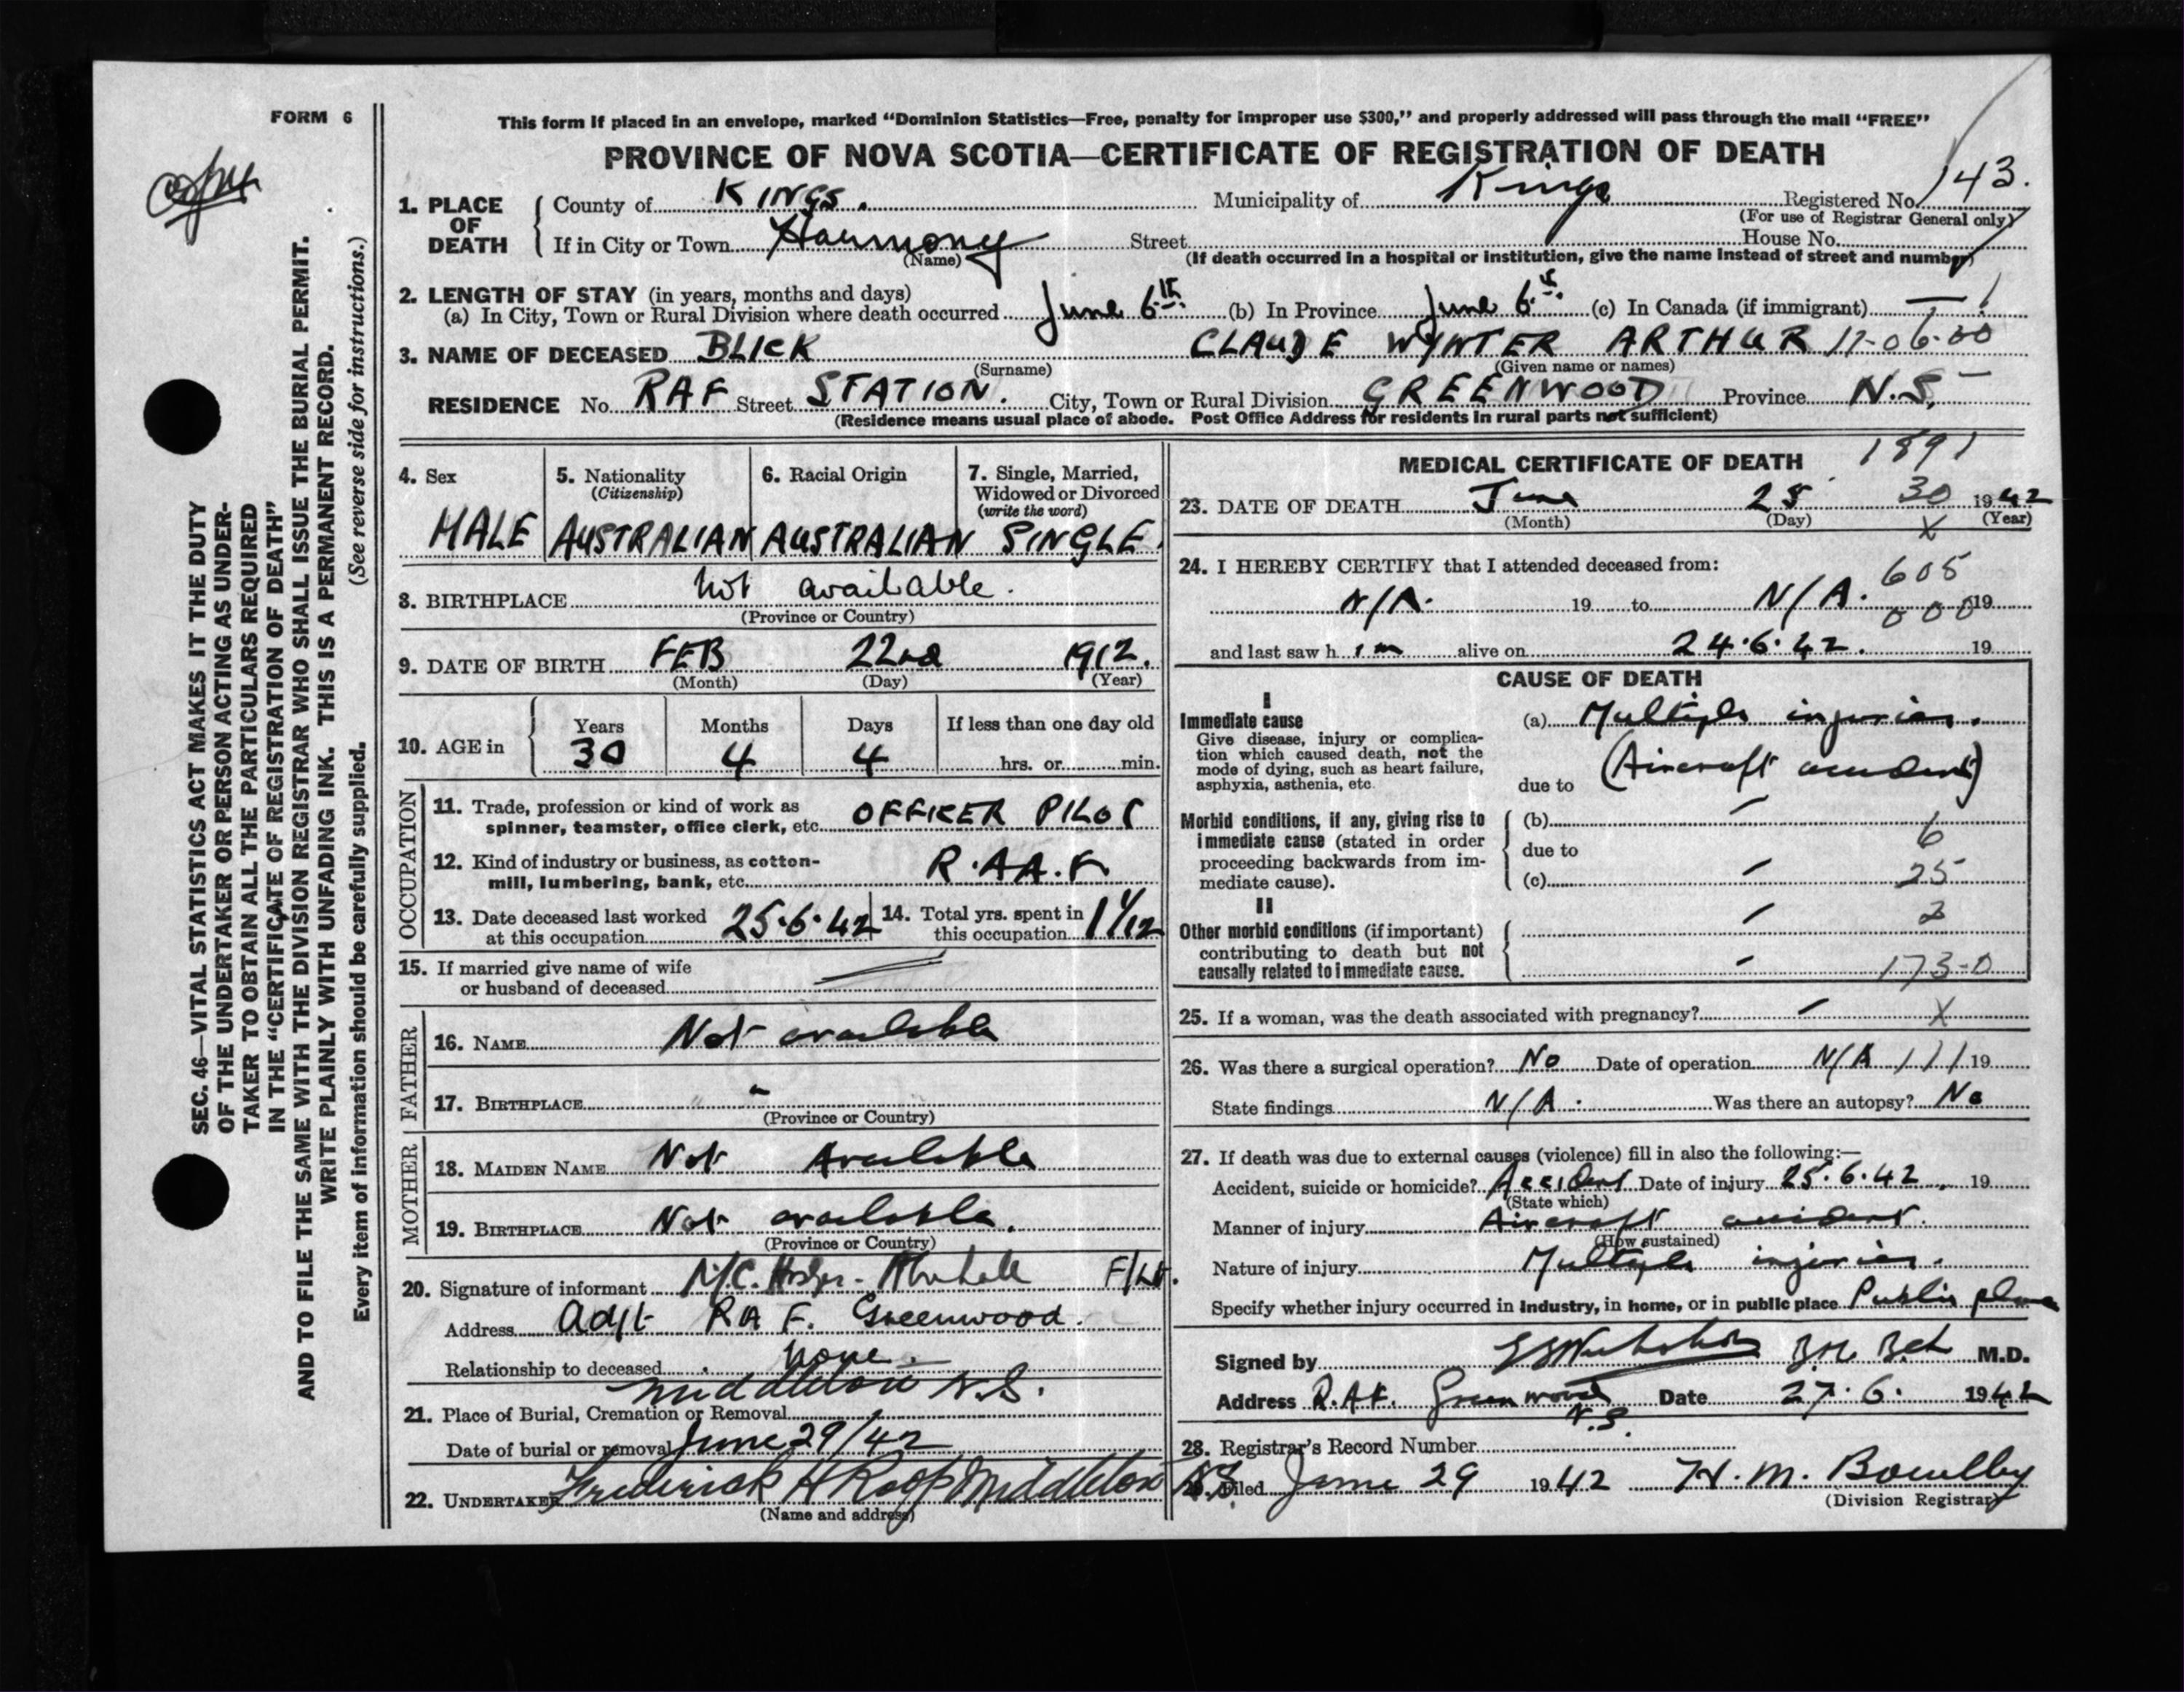 FORM 6
copy
This form if placed in an envelope, marked “Dominion Statistics—Free, penalty for improper use $300,” and properly addressed will pass through the mail “FREE”
PROVINCE OF NOVA SCOTIA—CERTIFICATE OF REGISTRATION OF DEATH
1. PLACE OF DEATH { County of KINGS. Municipality of Kings Registered No. 143.
(For use of Registrar General only)
If in City or Town Harmony Street House No.
(Name) (If death occurred in a hospital or institution, give the name instead of street and number)
2. LENGTH OF STAY (in years, months and days)
(a) In City, Town or Rural Division where death occurred June 6th. (b) In Province June 6th. (c) In Canada (if immigrant) —
3. NAME OF DECEASED BLICK CLAUDE WYNTER ARTHUR 17-06-00
(Surname) (Given name or names)
RESIDENCE No. RAF Street STATION. City, Town or Rural Division GREENWOOD Province N.S.
(Residence means usual place of abode. Post Office Address for residents in rural parts not sufficient)
4. Sex MALE
5. Nationality (Citizenship) AUSTRALIAN
6. Racial Origin AUSTRALIAN
7. Single, Married, Widowed or Divorced (write the word) SINGLE.
8. BIRTHPLACE not available.
(Province or Country)
9. DATE OF BIRTH FEB 22nd 1912.
(Month) (Day) (Year)
10. AGE in { Years 30 Months 4 Days 4 If less than one day old hrs. or min.
OCCUPATION
11. Trade, profession or kind of work as
spinner, teamster, office clerk, etc. OFFICER PILOT
12. Kind of industry or business, as cotton-
mill, lumbering, bank, etc. R.A.A.F
13. Date deceased last worked
at this occupation 25.6.42
14. Total yrs. spent in
this occupation 1 1/12
15. If married give name of wife
or husband of deceased
FATHER
16. NAME Not available
17. BIRTHPLACE "
(Province or Country)
MOTHER
18. MAIDEN NAME Not Available
19. BIRTHPLACE Not available.
(Province or Country)
20. Signature of informant F/Lt.
Address Adjt RAF. Greenwood.
Relationship to deceased none.
Middleton N.S.
21. Place of Burial, Cremation or Removal
Date of burial or removal June 29/42
22. UNDERTAKER Frederick H Roop Middleton N.S.
(Name and address)
MEDICAL CERTIFICATE OF DEATH 1891
23. DATE OF DEATH June 25 30 1942
(Month) (Day) (Year)
X
24. I HEREBY CERTIFY that I attended deceased from: 605
N/A. 19 to N/A. 000 19
and last saw him alive on 24.6.42. 19
CAUSE OF DEATH
I
Immediate cause
Give disease, injury or complica-
tion which caused death, not the
mode of dying, such as heart failure,
asphyxia, asthenia, etc.
(a) Multiple injuries.
due to (Aircraft accident)
Morbid conditions, if any, giving rise to
immediate cause (stated in order
proceeding backwards from im-
mediate cause).
(b) 6
due to
(c) 25
II
Other morbid conditions (if important)
contributing to death but not
causally related to immediate cause.
2
173-0
25. If a woman, was the death associated with pregnancy? X
26. Was there a surgical operation? No Date of operation N/A 19
State findings N/A. Was there an autopsy? No
27. If death was due to external causes (violence) fill in also the following:—
Accident, suicide or homicide? Accident Date of injury 25.6.42. 19
(State which)
Manner of injury Aircraft accident.
(How sustained)
Nature of injury Multiple injuries.
Specify whether injury occurred in industry, in home, or in public place Public place
Signed by M.D.
Address R.A.F. Greenwood N.S. Date 27.6. 1942
28. Registrar's Record Number
29. Filed June 29 1942 H. M. Bowlby
(Division Registrar)
SEC. 46—VITAL STATISTICS ACT MAKES IT THE DUTY
OF THE UNDERTAKER OR PERSON ACTING AS UNDER-
TAKER TO OBTAIN ALL THE PARTICULARS REQUIRED
IN THE “CERTIFICATE OF REGISTRATION OF DEATH”
AND TO FILE THE SAME WITH THE DIVISION REGISTRAR WHO SHALL ISSUE THE BURIAL PERMIT.
WRITE PLAINLY WITH UNFADING INK. THIS IS A PERMANENT RECORD.
Every item of information should be carefully supplied. (See reverse side for instructions.)